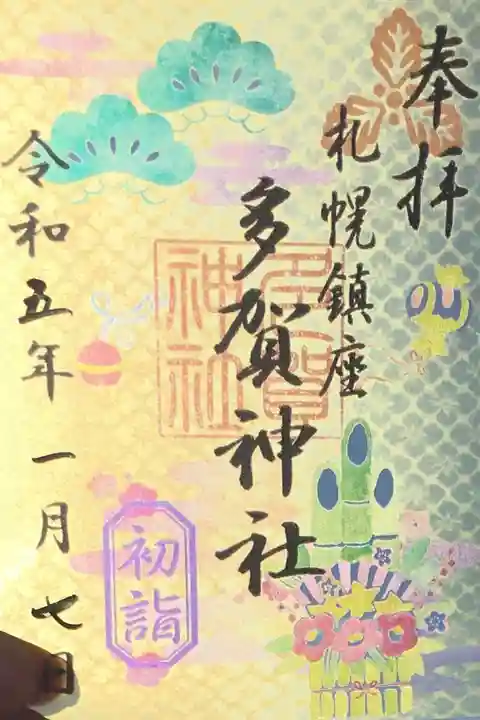 奉拝
札幌鎮座
多賀神社
多賀神社
初詣
令和五年 一月 七日